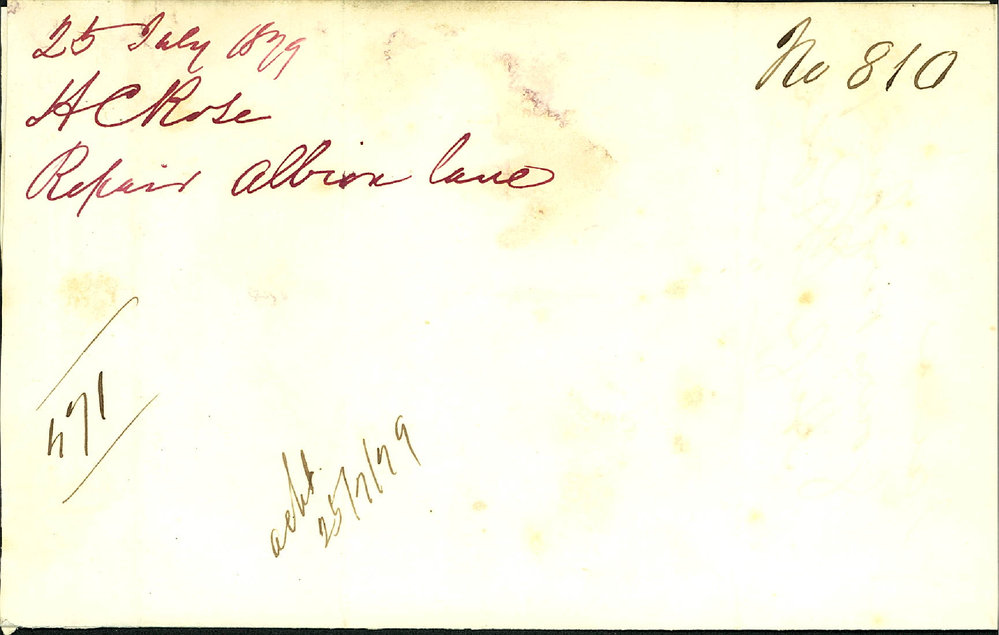 25 July 1879
No 810
H C Rose
Repair Albion lane
571
ackd
25/7/79